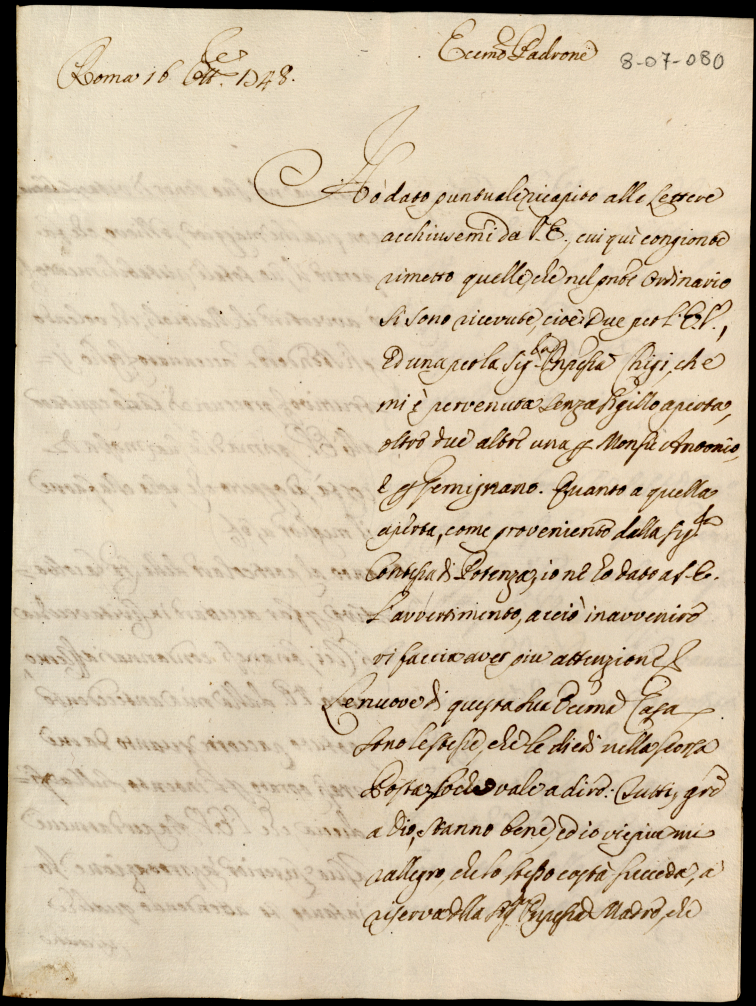 Eccmo Padrone
8-07-080
Roma 16 Ottre 1748.
Ho dato puntuale ricapito alle lettere
acchiusemi da V.E., cui qui congionte
rimetto quelle, che nel pnte Ordinario
si sono ricevute, cioè Due per l'E.V.,
ed una per la Sigra Pnpessa Chigi, che
mi è pervenuta senza sigillo aperta,
oltre due altre una p Monsù Antonio,
e p Gemignano. Quanto a quella
aperta, come proveniente dalla Sigra
Contessa di Potenza, io ne ho dato a S.E.
l'avvertimento, acciò in avvenire
vi faccia aver più attenzione
Le nuove di questa sua Eccma Casa
sono le stesse, che le diedi nella scorsa
Posta, lo che vale a dire: Tutti, gre
a Dio, stanno bene, ed io viepiù mi
rallegro, che lo stesso costà succeda, a
riserva della Sigra Pnpessa Madre, che